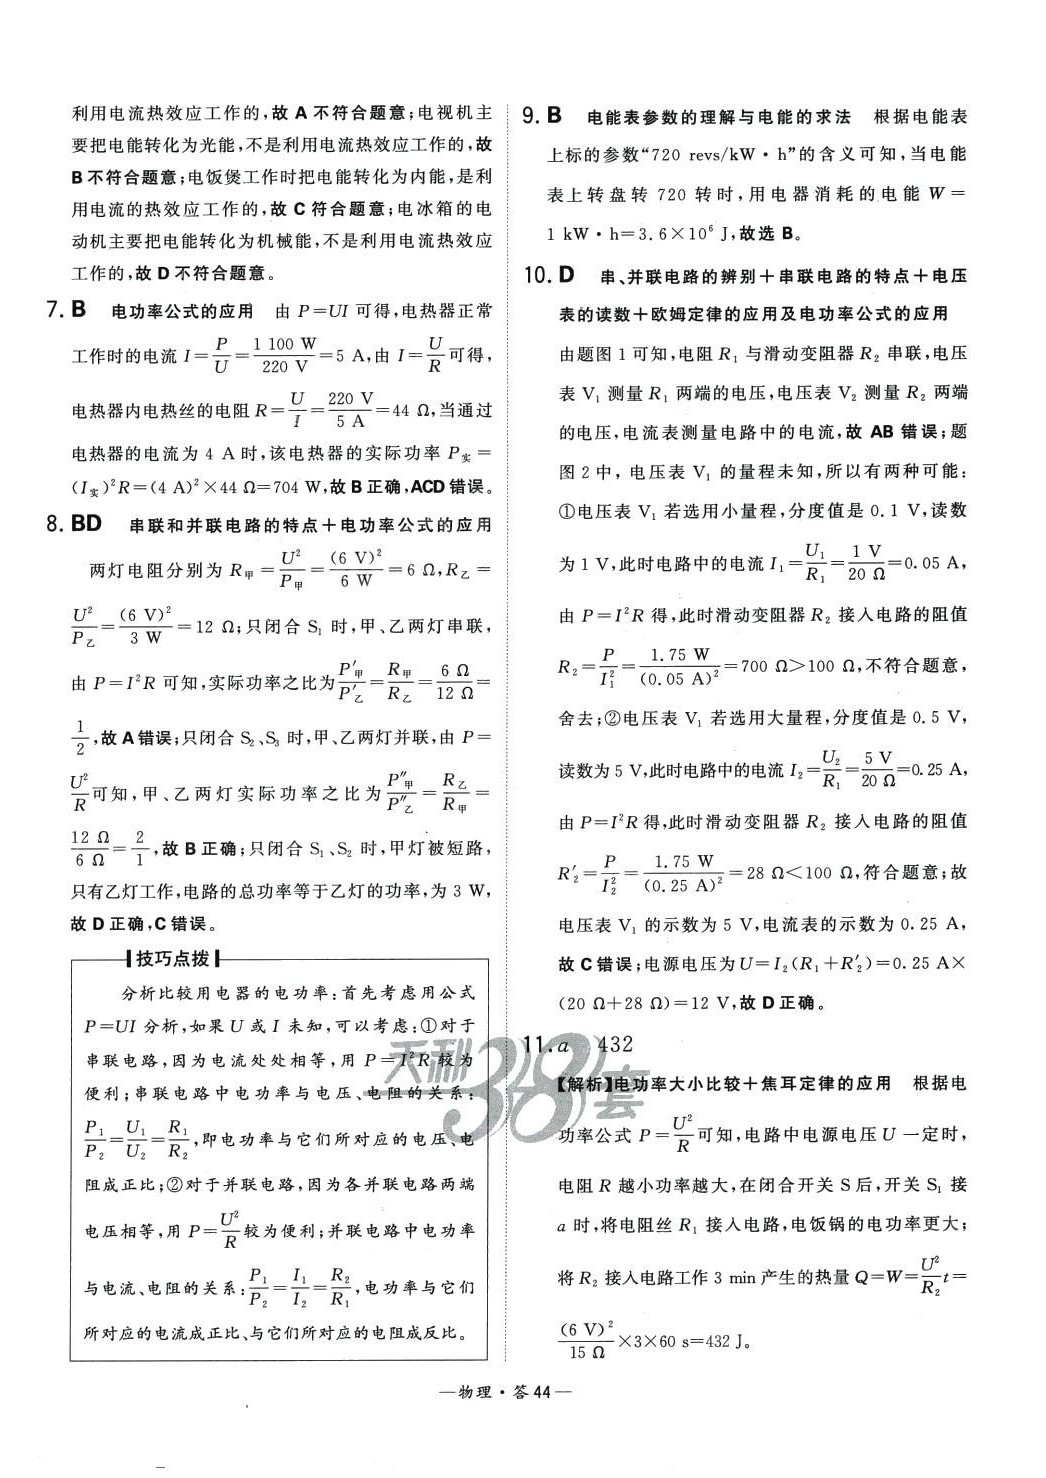 利用电流热效应工作的,故 A 不符合题意;电视机主
要把电能转化为光能,不是利用电流热效应工作的,故
B不符合题意;电饭煲工作时把电能转化为内能,是利
用电流的热效应工作的,故 C 符合题意;电冰箱的电
动机主要把电能转化为机械能,不是利用电流热效应
工作的,故 D 不符合题意。
7. B 电功率公式的应用 由 P=UI 可得,电热器正常
工作时的电流 I=P/U=1 100 W/220 V=5 A,由 I=U/R可得,
电热器内电热丝的电阻 R=U/I=220 V/5 A=44 Ω,当通过
电热器的电流为 4 A 时,该电热器的实际功率 P实=
(I实)²R=(4 A)²×44 Ω=704 W,故 B 正确,ACD 错误。
8. BD 串联和并联电路的特点+电功率公式的应用
两灯电阻分别为 R甲=U²/P甲=(6 V)²/6 W=6 Ω,R乙=
U²/P乙=(6 V)²/3 W=12 Ω;只闭合 S₁ 时,甲、乙两灯串联,
由 P=I²R 可知,实际功率之比为P′甲/P′乙=R甲/R乙=6 Ω/12 Ω=
1/2,故 A 错误;只闭合 S₂、S₃ 时,甲、乙两灯并联,由 P=
U²/R可知,甲、乙两灯实际功率之比为P″甲/P″乙=R乙/R甲=
12 Ω/6 Ω=2/1,故 B 正确;只闭合 S₁、S₂ 时,甲灯被短路,
只有乙灯工作,电路的总功率等于乙灯的功率,为 3 W,
故 D 正确,C 错误。
技巧点拨
分析比较用电器的电功率:首先考虑用公式
P=UI 分析,如果 U 或 I 未知,可以考虑:①对于
串联电路,因为电流处处相等,用 P=I²R 较为
便利;串联电路中电功率与电压、电阻的关系:
P₁/P₂=U₁/U₂=R₁/R₂,即电功率与它们所对应的电压、电
阻成正比;②对于并联电路,因为各并联电路两端
电压相等,用 P=U²/R较为便利;并联电路中电功率
与电流、电阻的关系:P₁/P₂=I₁/I₂=R₂/R₁,电功率与它们
所对应的电流成正比、与它们所对应的电阻成反比。
9. B 电能表参数的理解与电能的求法 根据电能表
上标的参数“720 revs/kW·h”的含义可知,当电能
表上转盘转 720 转时,用电器消耗的电能 W=
1 kW·h=3.6×10⁶ J,故选 B。
10. D 串、并联电路的辨别+串联电路的特点+电压
表的读数+欧姆定律的应用及电功率公式的应用
由题图 1 可知,电阻 R₁ 与滑动变阻器 R₂ 串联,电压
表 V₁ 测量 R₁ 两端的电压,电压表 V₂ 测量 R₂ 两端
的电压,电流表测量电路中的电流,故 AB 错误;题
图 2 中,电压表 V₁ 的量程未知,所以有两种可能:
①电压表 V₁ 若选用小量程,分度值是 0.1 V,读数
为 1 V,此时电路中的电流 I₁=U₁/R₁=1 V/20 Ω=0.05 A,
由 P=I²R 得,此时滑动变阻器 R₂ 接入电路的阻值
R₂=P/I₁²=1.75 W/(0.05 A)²=700 Ω>100 Ω,不符合题意,
舍去;②电压表 V₁ 若选用大量程,分度值是 0.5 V,
读数为 5 V,此时电路中的电流 I₂=U₂/R₁=5 V/20 Ω=0.25 A,
由 P=I²R 得,此时滑动变阻器 R₂ 接入电路的阻值
R′₂=P/I₂²=1.75 W/(0.25 A)²=28 Ω<100 Ω,符合题意;故
电压表 V₁ 的示数为 5 V,电流表的示数为 0.25 A,
故 C 错误;电源电压为U=I₂(R₁+R′₂)=0.25 A×
(20 Ω+28 Ω)=12 V,故 D 正确。
11. a 432
【解析】电功率大小比较+焦耳定律的应用 根据电
功率公式 P=U²/R可知,电路中电源电压 U 一定时,
电阻 R 越小功率越大,在闭合开关 S 后,开关 S₁ 接
a 时,将电阻丝 R₁ 接入电路,电饭锅的电功率更大;
将 R₂ 接入电路工作 3 min 产生的热量 Q=W=U²/R₂t=
(6 V)²/15 Ω×3×60 s=432 J。
天利38套
—物理·答44—